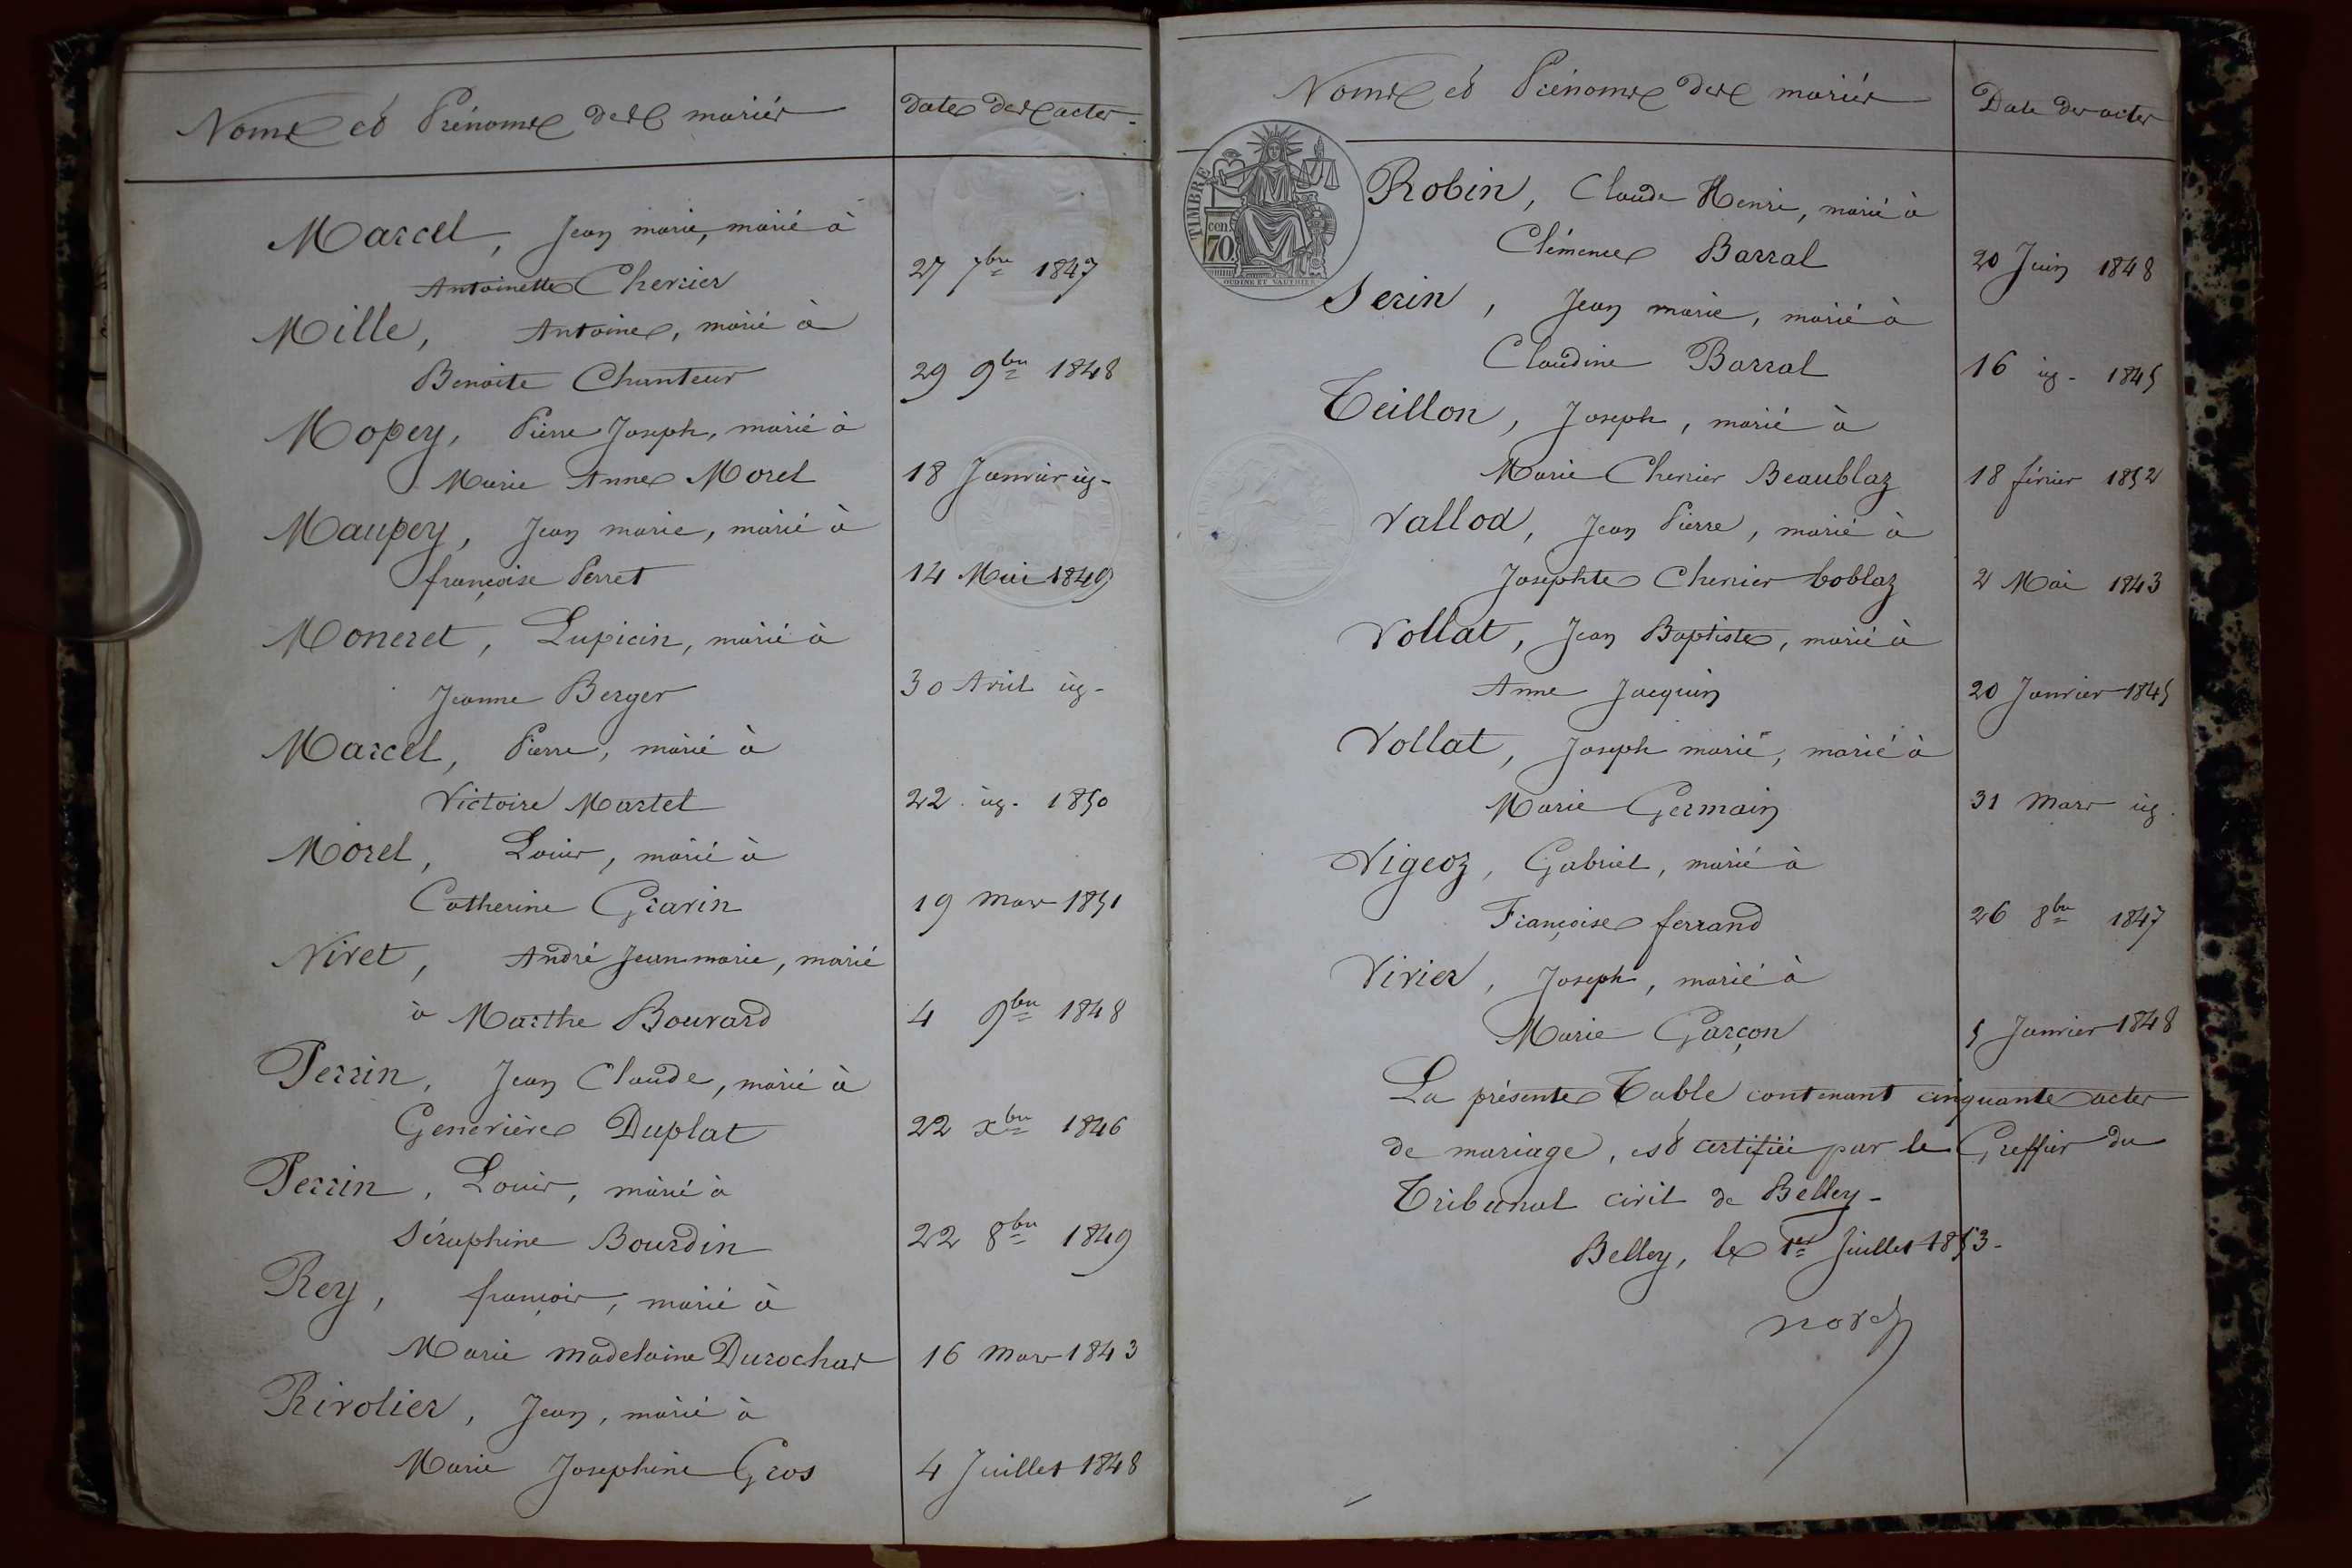 Noms et Prénoms des mariés
Dates des actes.
Marcel, Jean marie, marié à
Antoinette Cherrier
27 7bre 1847
Mille, Antoine, marié à
Benoite Chanteur
29 9bre 1848
Mopey, Pierre Joseph, marié à
Marie Anne Morel
18 Janvier ig-
Maupey, Jean marie, marié à
françoise Perret
14 Mai 1849
Moneret, Lupicin, marié à
Jeanne Berger
30 Avril ig-
Marcel, Pierre, marié à
Victoire Martel
22 ig. 1850
Morel, Louis, marié à
Catherine Gravin
19 Mars 1851
Nivet, André Jean marie, marié
à Marthe Bouvard
4 9bre 1848
Perrin, Jean Claude, marié à
Geneviève Duplat
22 xbre 1846
Perrin, Louis, marié à
Séraphine Bourdin
22 8bre 1849
Rey, françois, marié à
Marie Madelaine Durochat
16 Mars 1843
Rivolier, Jean, marié à
Marie Josephine Gros
4 Juillet 1848
Noms et Prénoms des mariés
Date des actes
TIMBRE
cen.
70
OUDINE ET VAUTHIER
Robin, Claude Henri, marié à
Clémence Barral
20 Juin 1848
Serin, Jean marie, marié à
Claudine Barral
16 ig- 1845
Teillon, Joseph, marié à
Marie Cherrier Beaublaz
18 février 1852
Vallod, Jean Pierre, marié à
Josephte Cherrier boblaz
2 Mai 1843
Vollat, Jean Baptiste, marié à
Anne Jacquin
20 Janvier 1845
Vollat, Joseph marie, marié à
Marie Germain
31 Mars ig.
Vigeoz, Gabriel, marié à
Françoise ferrand
26 8bre 1847
Vivier, Joseph, marié à
Marie Garçon
5 Janvier 1848
La présente Table contenant cinquante actes
de mariage, est certifiée par le Greffier du
Tribunal civil de Belley-
Belley, le 1er Juillet 1853-